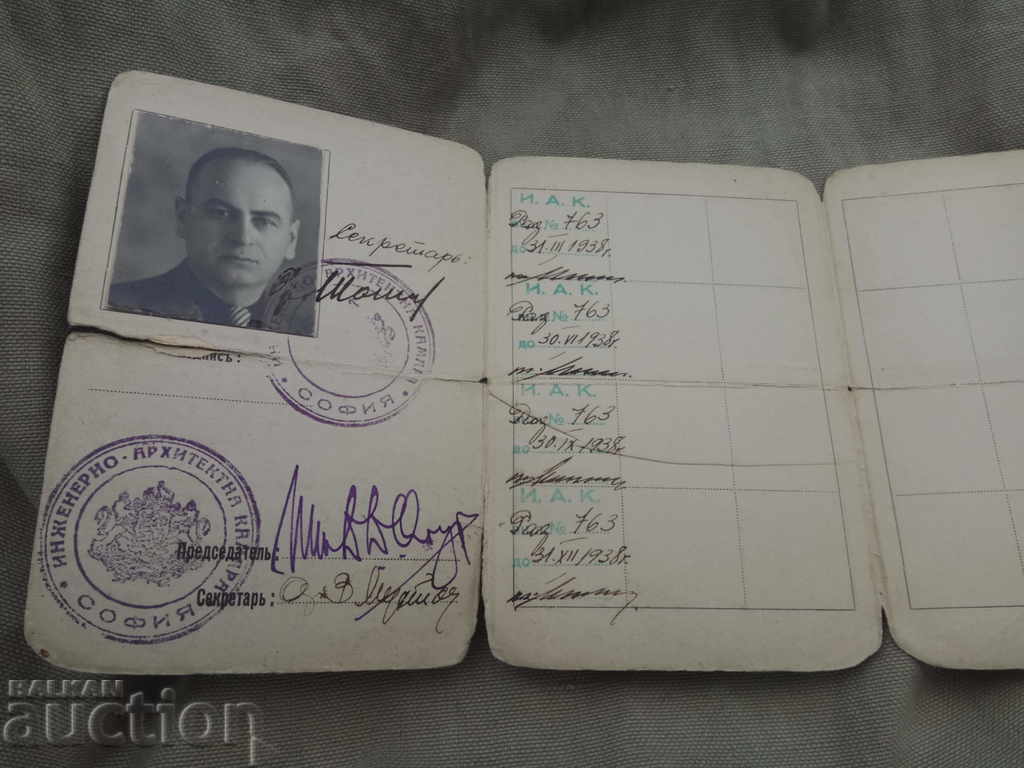 Секретарь:
АРХИТЕКТНА КАМАРА
СОФИЯ
ИНЖЕНЕРНО-АРХИТЕКТНА КАМАРА
СОФИЯ
Председатель:
Секретарь:
И. А. К.
№ 763
до 31.III 1938г.
И. А. К.
№ 763
до 30.VI 1938г.
И. А. К.
№ 763
до 30.IX 1938г.
И. А. К.
№ 763
до 31.XII 1938г.
BALKAN
auction